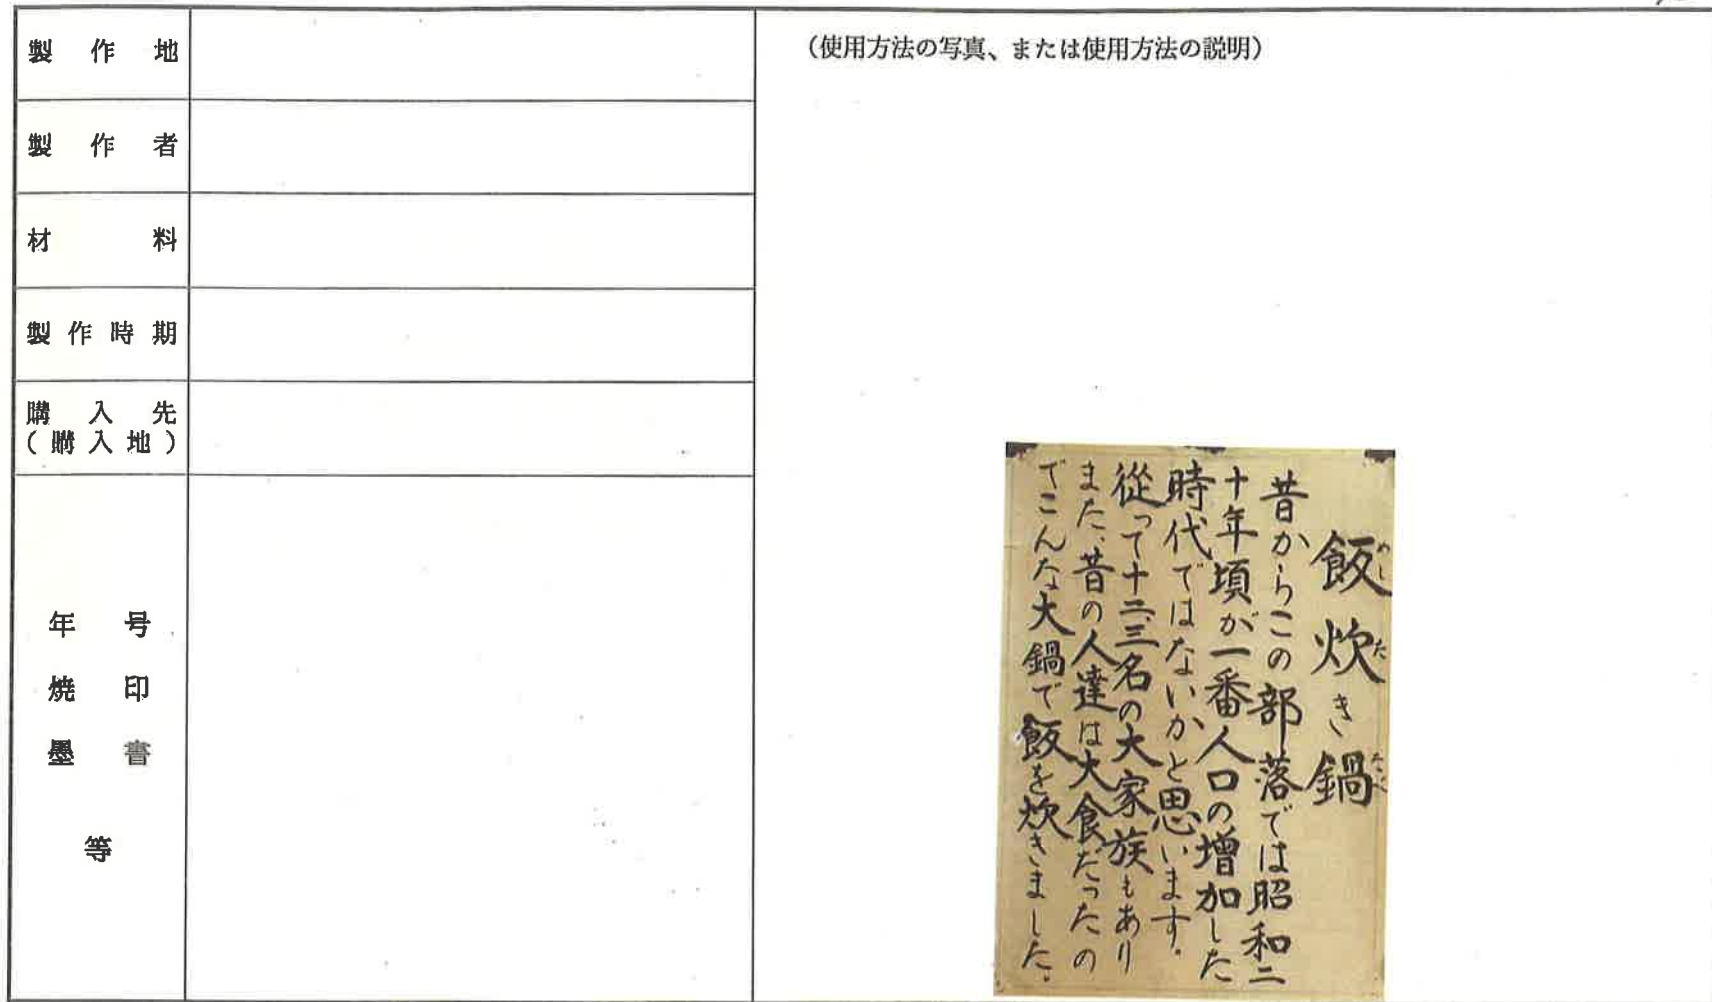 製作地
製作者
材料
製作時期
購入先
(購入地)
年号
焼印
墨書
等
(使用方法の写真、または使用方法の説明)
飯炊き鍋
めしたきなべ
昔からこの部落では昭和二
十年頃が一番人口の増加した
時代ではないかと思います。
従って十二、三名の大家族もあり
また、昔の人達は大食だったの
でこんな大鍋で飯を炊きました。